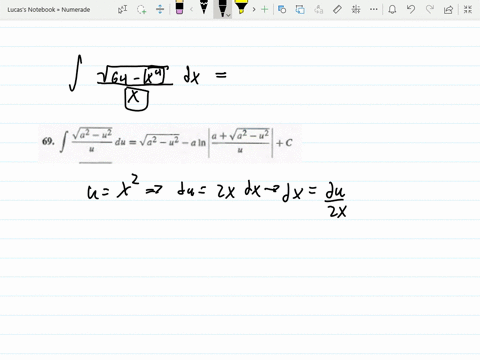 Lucas's Notebook • Numerade
∫ √(64 - x⁴) / x dx =
69. ∫ √(a² - u²) / u du = √(a² - u²) - a ln |(a + √(a² - u²)) / u| + C
u = x² ⇒ du = 2x dx → dx = du / 2x